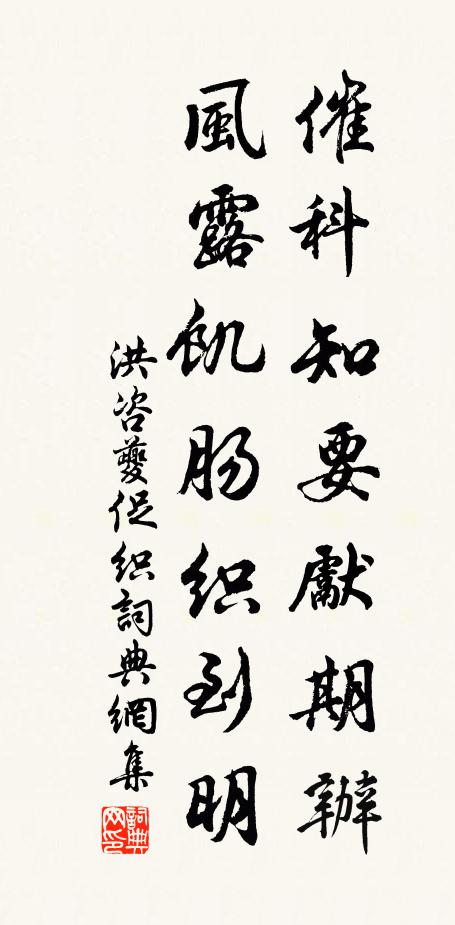 催科知要獻期辦
風露飢肠织到明
洪咨夔促织詞典網集
詞典
网印